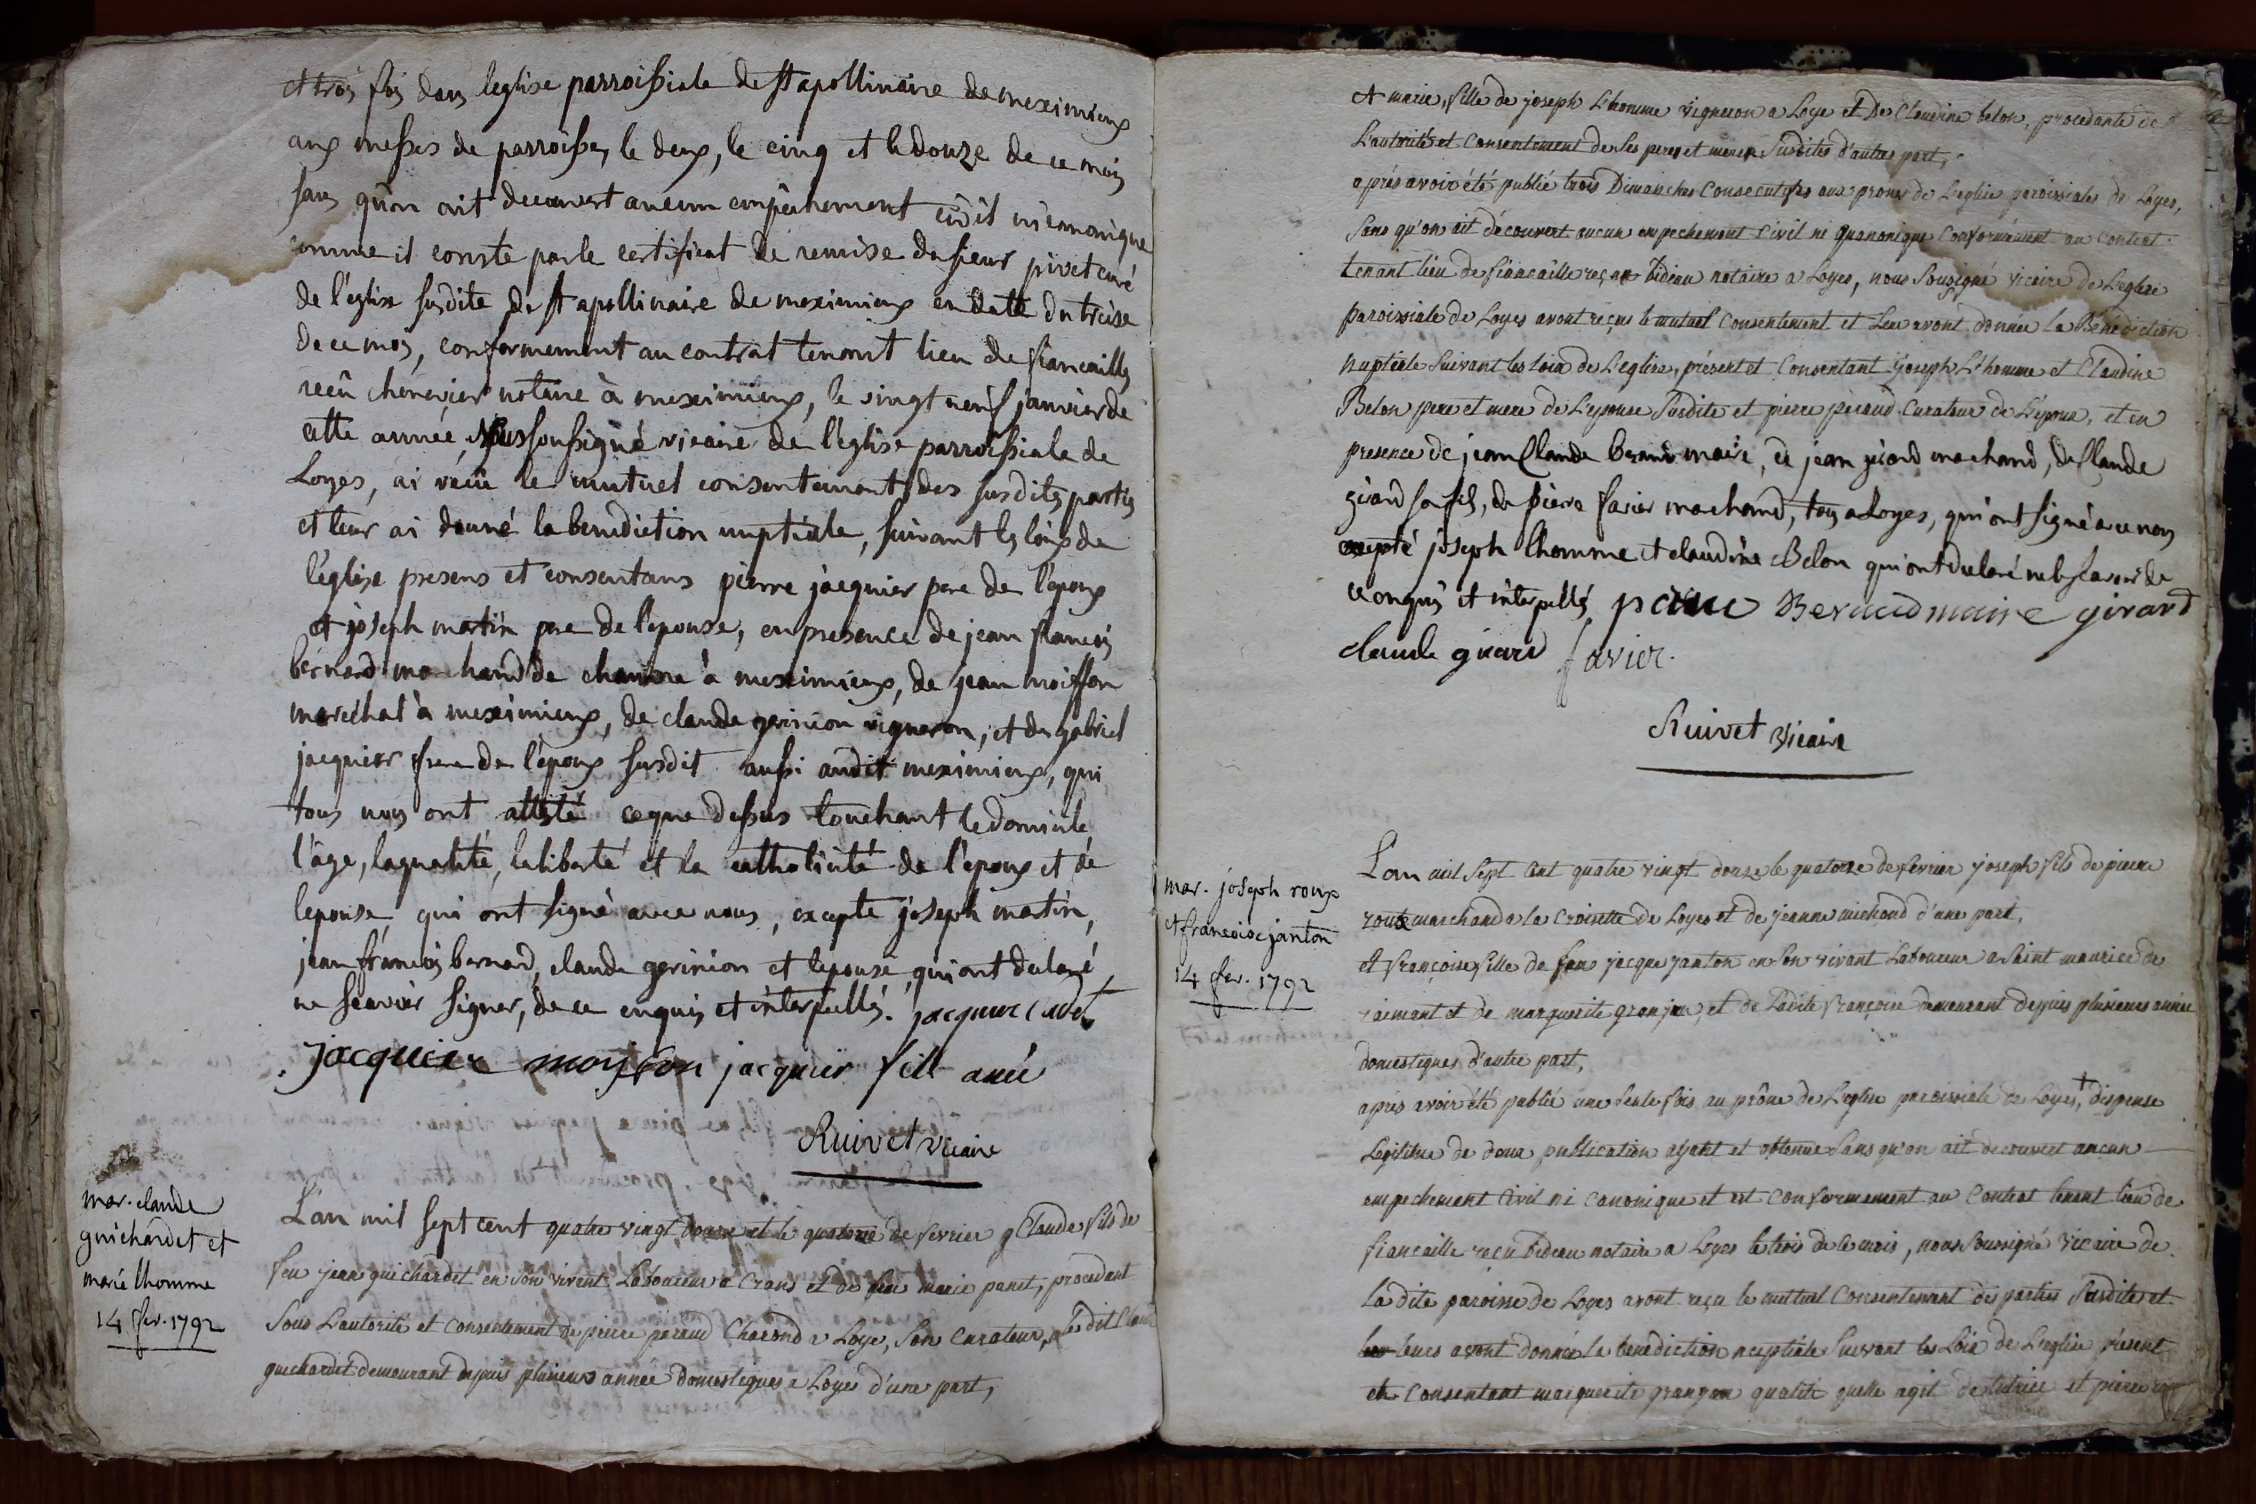 et trois fois dans leglise parroissiale de st apollinaire de meximieux
aux messes de parroisses, le deux, le cinq et le douze de ce mois
sans qu'on ait decouvert aucun empêchement civil ni canonique
comme il conste par le certificat de remise du sieur pivet curé
de l'eglise susdite de st apollinaire de meximieux en datte du treise
de ce mois, conformement au contrat tenant lieu de fiancailles
recû notaire à meximieux, le vingt neuf janvier de
cette année, Nous soussigné vicaire de l'église parroissiale de
Loyes, ai recû le mutuel consentement des susdites parties
et leur ai donné la benediction nuptiale, suivant les loix de
l'église presens et consentans pierre jacquier pere de l'epoux
et joseph martin pere de l'epouse, en presence de jean francois
bernard marchand de chanvre à meximieux, de jean moisson
maréchal à meximieux, de claude gorinion vigneron, et de gabriel
jacquier frere de l'époux susdit aussi audit meximieux, qui
tous nous ont attesté ce que dessus touchant le domicile,
l'âge, la qualité, la liberté et la catholicité de l'epoux et de
lepouse, qui ont signé avec nous, excepté joseph martin,
jean francois bernard, claude gorinion et lepouse, qui ont declaré
ne scavoir signer, de ce enquis et interpellés. jacquier cadet
jacquier moysson jacquier fils ainé
Ruivet vicaire
mar. claude
guichardet et
marie lhomme
14 fev. 1792
L'an mil sept cent quatre vingt douze et le quatorze de fevrier Claude fils de
feu jean guichardet en son vivent Laboureur a Crans et de feu marie panet, procedant
Sous L'autorité et consentement de pierre peraud Charond a Loye, son curateur, Ledit Claude
guichardet demeurant depuis plusieurs année domestiques a Loyes d'une part,
et marie, fille de joseph L'homme vigneron a Loye et De Claudine belon, procedante de
L'autorité et Consentement de ses peres et meres Susdites d'autres part,
après avoir été publié trois Dimanches Consecutifes aux prones de L'eglise paroissiales de Loyes,
Sans qu'on ait découvert aucun empechement Civil ni quanonique Conformément au Contrat
tenant lieu de fiancaille reçue bideau notaire a Loyes, nous Sousigné vicaire de Leglise
paroissiale de Loyes avont reçus le mutuel Consentement et Leur avont donnée la Bénédiction
nuptiale Suivant les loix de L'eglise, présent et Consentant joseph L'homme et Claudine
Belon pere et mere de L'epouse Susdite et pierre peraud Curateur de L'époux, et en
presence de jean Claude beraud maire, de jean girard marchand, de Claude
girard son fils, de pierre favier marchand, tous a Loyes, qui ont signé avec nous
excepté joseph lhomme et claudine Belon qui ont declaré ne le scavoir de
ce enquis et interpellés Beraud maire girard
claude girard favier
Ruivet vicaire
mar. joseph roux
et francoise janton
14 fev. 1792
L'an mil Sept Cent quatre vingt douze le quatorze de fevrier joseph fils de pierre
roux marchand a la Croisette de Loyes et de jeanne michaud d'une part,
et françoise fille de feu jacque janton en Son vivant Laboureur a Saint maurice de
raimant et de marguerite granjon, et de Ladite françoise demeurant depuis plusieurs année
domestiques d'autre part,
apres avoir été publié une Seule fois au prône de L'eglise paroissiale de Loyes, + dispense
Legitime de deux publication ayant et obtenue Sans qu'on ait decouvert aucun
empechement Civil ni canonique et est conformement au Contrat tenant lieu de
fiancaille reçu bideau notaire a Loyes le trois de ce mois, nous Soussigné vicaire de
La dite paroisse de Loyes avont reçu le mutuel Consentement des parties Susdites et
leurs avont donnée la benediction nuptiale Suivant les Loix de L'eglise present
et Consentant marguerite granjon qualité quelle agit de tutrice et pierre